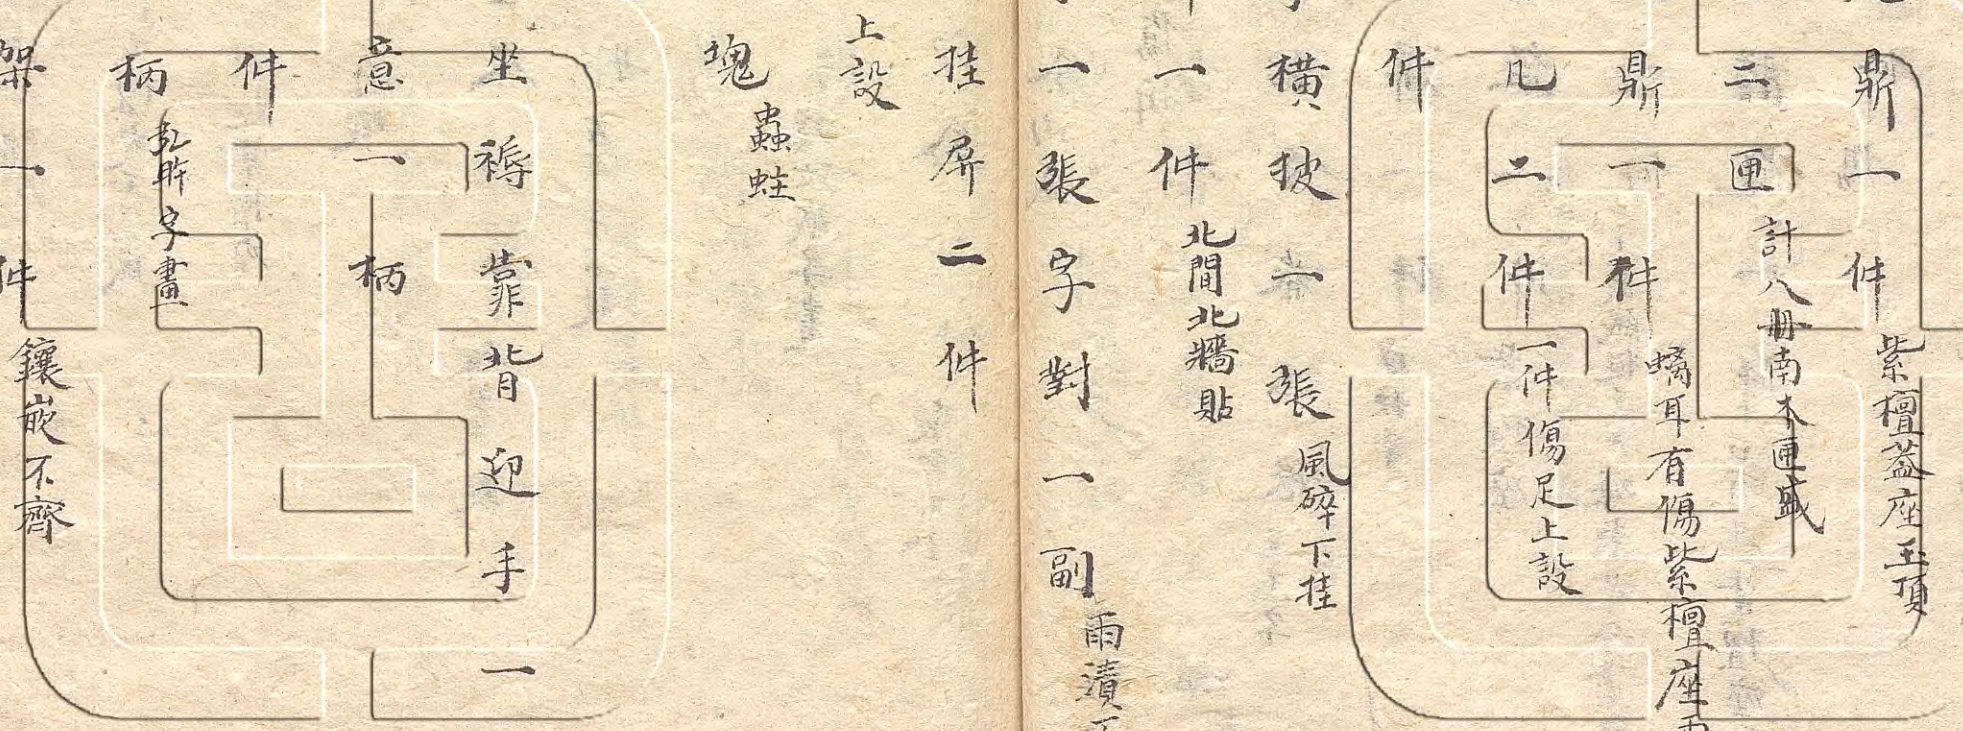 鼎一件紫檀蓋座玉頂
二匣計八冊南木匣盛
鼎一件螭耳有傷紫檀座
几二件一件傷足上設
件
橫披一張風碎下挂
一件北間北牆貼
一張字對一副雨漬
挂屏二件
上設
塊蟲蛀
坐褥靠背迎手一
意一柄
件
柄乾字畫
架一件鑲嵌不齊